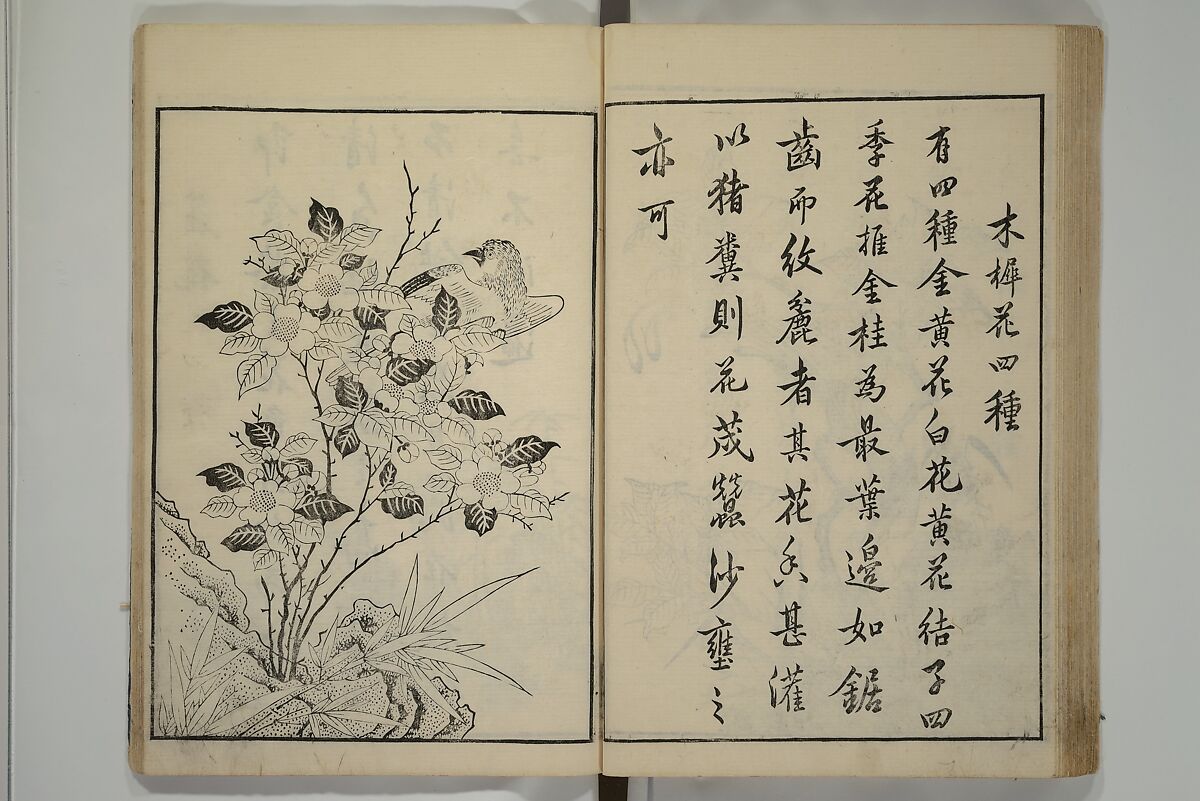 木樨花四種
有四種金黄花白花黄花结子四
季花推金桂為最葉邊如鋸
齒而紋麄者其花香甚灌
以猪糞則花茂蠶沙壅之
亦可